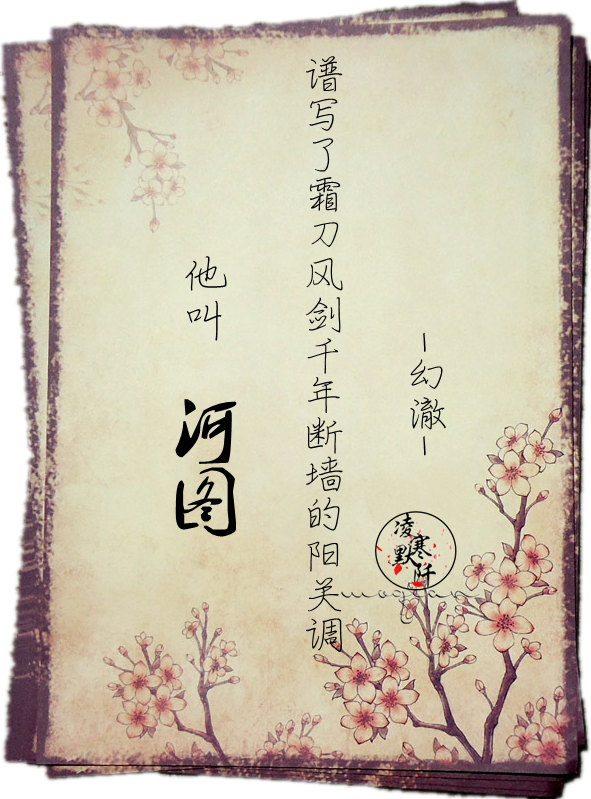 谱写了霜刀风剑千年断墙的阳关调
-幻澈-
他叫
河图
凌寒
默阡